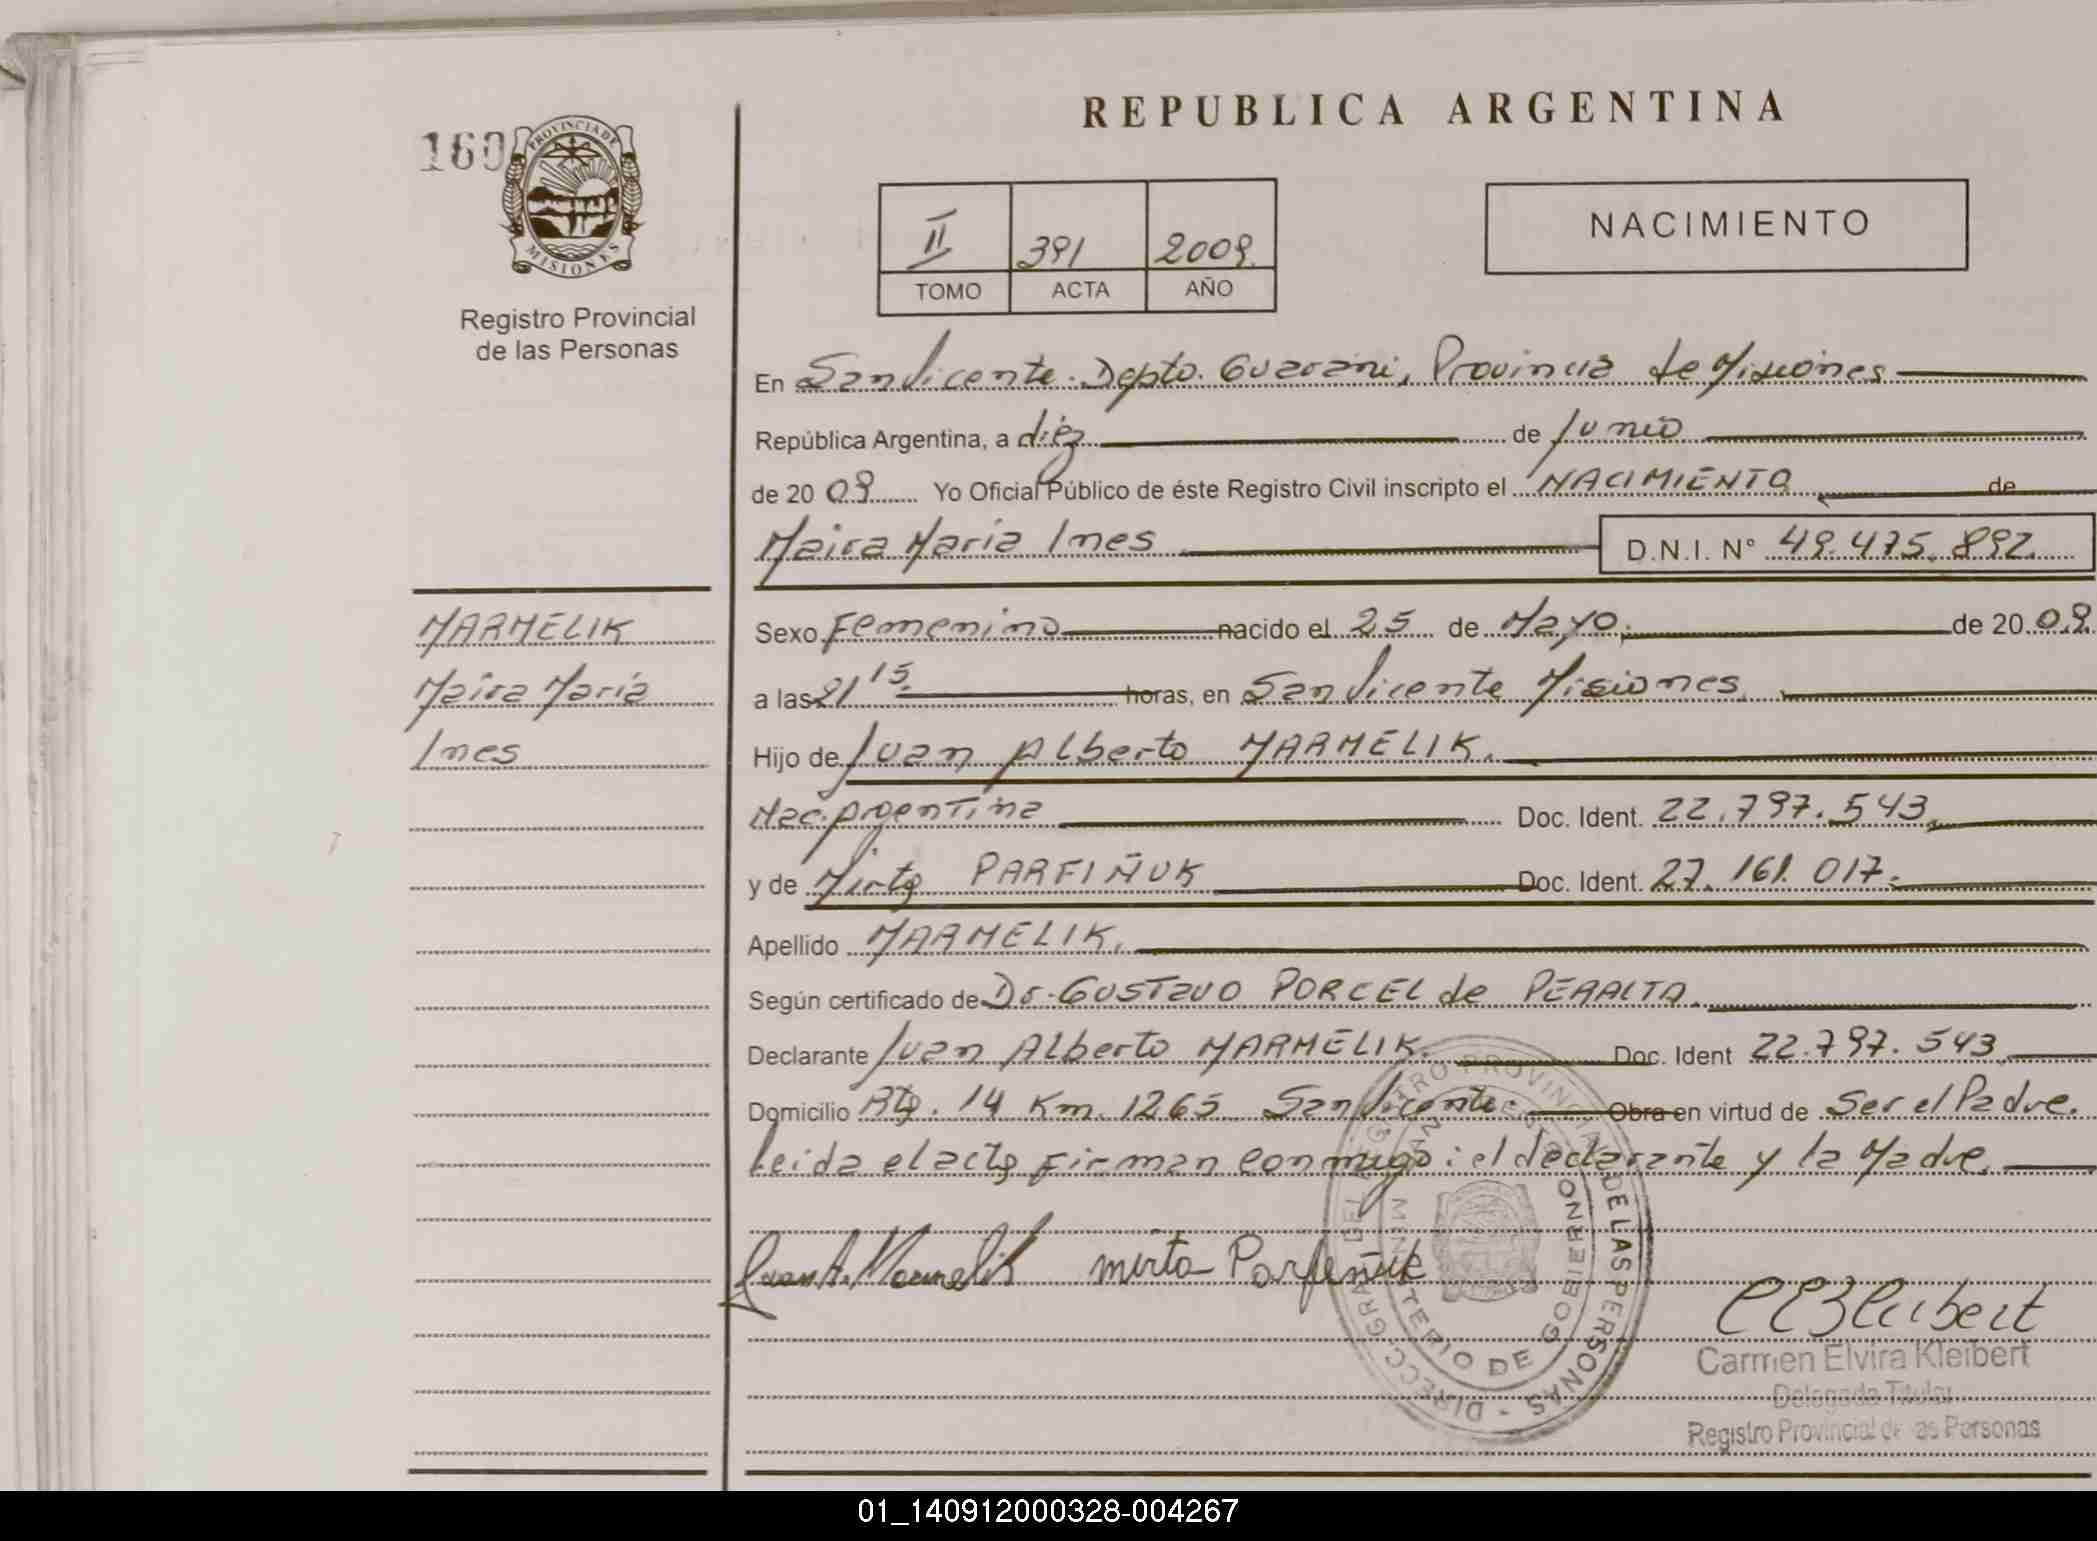 REPUBLICA ARGENTINA
160
PROVINCIA DE
MISIONES
Registro Provincial
de las Personas
II 391 2009
TOMO ACTA AÑO
NACIMIENTO
En San Vicente. Depto. Guarani, Provincia de Misiones
República Argentina, a diez de Junio
de 20 09 Yo Oficial Público de éste Registro Civil inscripto el NACIMIENTO de
Maira Maria Ines D.N.I. Nº 49.475.892.
MARMELIK
Maira Maria
Ines
Sexo Femenino nacido el 25 de Mayo. de 20 09
a las 21 15. horas, en San Vicente Misiones.
Hijo de Juan Alberto MARMELIK.
Nac. Argentina Doc. Ident. 22.797.543.
y de Mirta PARFIÑUK Doc. Ident. 27.161.017.
Apellido MARMELIK.
Según certificado de Dr. GUSTAVO PORCEL de PERALTA.
Declarante Juan Alberto MARMELIK. Doc. Ident 22.797.543
Domicilio Rta. 14 Km. 1265 San Vicente. Obra en virtud de Ser el Padre.
Leida el acta Firman conmigo: el declarante y la Madre.
Juan A. Marmelik mirta Parfeñuk
DIRECC. GRAL. DEL REGISTRO PROVINCIAL DE LAS PERSONAS -
MINISTERIO DE GOBIERNO
Carmen Elvira Kleibert
Delegada Titular
Registro Provincial de las Personas
01_140912000328-004267